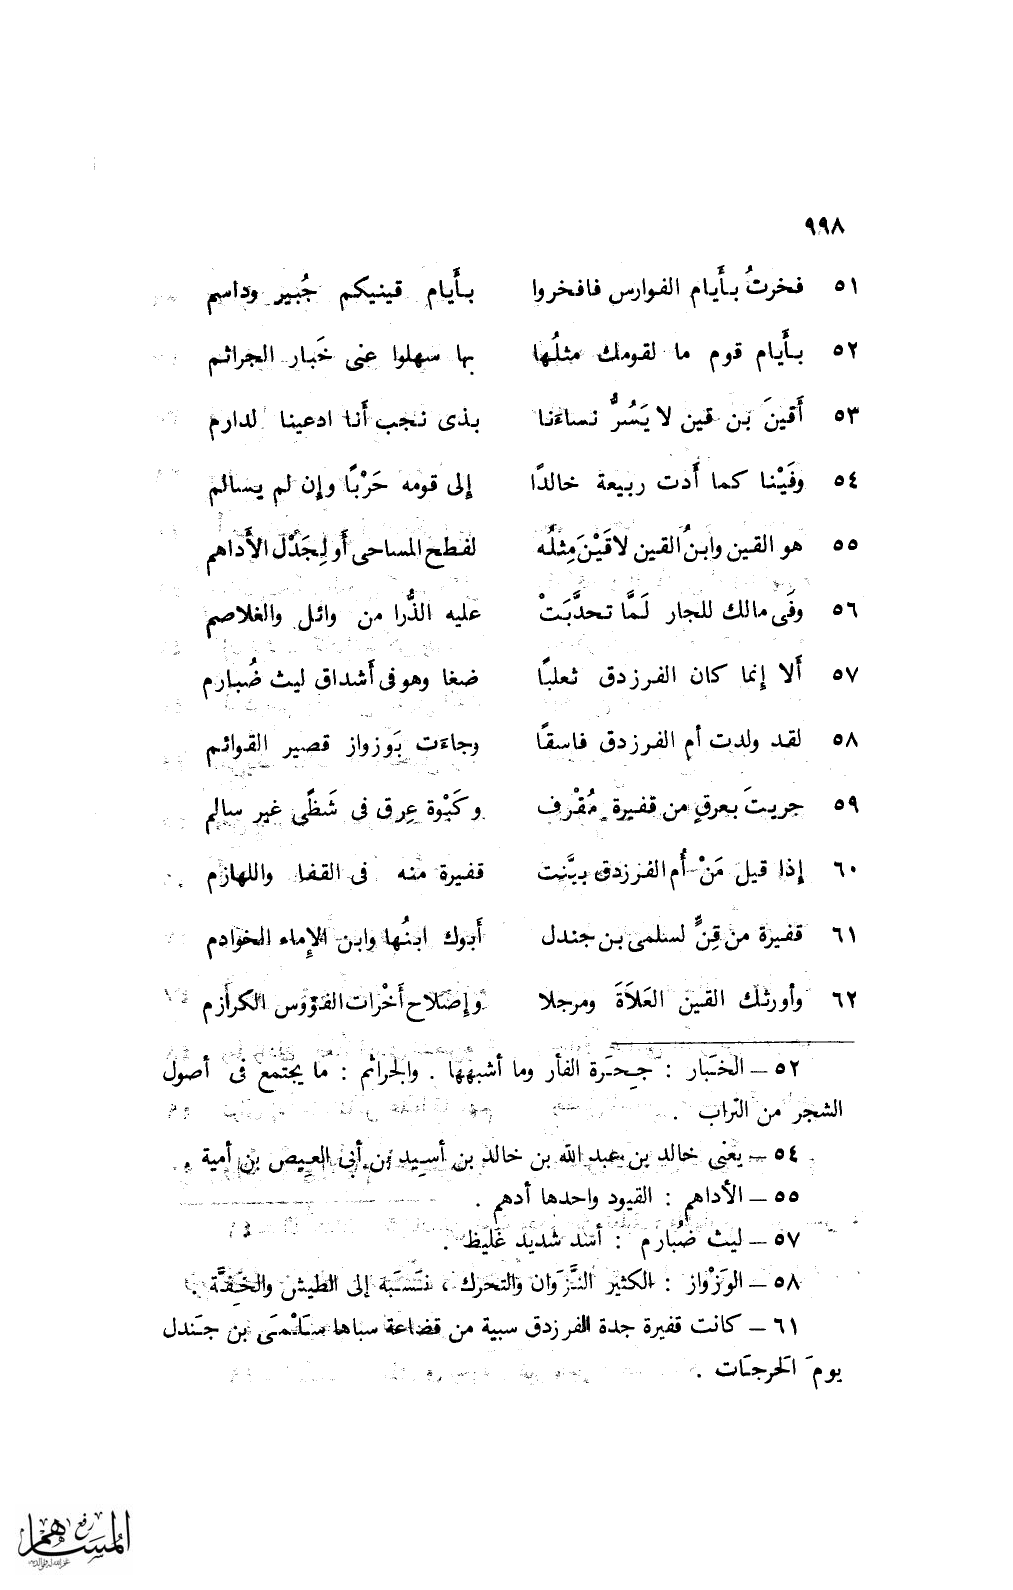 ٩٩٨
٥١ فخرتُ بأَيام الفوارس فافخروا بأَيام قينيكم جُبير وداسم
٥٢ بأَيام قوم ما لقومك مثلُها بها سهلوا عنى خَبار الجراثم
٥٣ أَقينَ بن قين لا يَسُرُّ نساءَنا بذى نجب أَنا ادعينا لدارم
٥٤ وفَيْنا كما أَدت ربيعة خالدًا إلى قومه حَرْبًا وإن لم يسالم
٥٥ هو القين وابنُ القين لا قَيْنَ مِثلُه لفطح المساحى أَو لِجَدْل الأَداهم
٥٦ وفَى مالك للجار لَمَّا تحدَّبَتْ عليه الذُّرا من وائل والغلاصم
٥٧ أَلا إنما كان الفرزدق ثعلبًا ضغا وهو فى أَشداق ليث ضُبارم
٥٨ لقد ولدت أم الفرزدق فاسقًا وجاءَت بَوزواز قصير القوائم
٥٩ جريتَ بعرقٍ من قفيرة مُقْرف وكَبْوة عِرق فى شَظًى غير سالم
٦٠ إذا قيل مَنْ أُم الفرزدق بيَّنت قفيرة منه فى القفا واللهازم
٦١ قفيرة من قِنٍّ لسلمى بن جندل أَبوك ابنُها وابن الإِماء الخوادم
٦٢ وأورثك القين العَلاَةَ ومرجلا وإصلاح أَخْرات الفؤوس الكرازم
٥٢ – الخَبار : جِحَرة الفأر وما أشبهها . والجراثم : ما يجتمع فى أصول
الشجر من التراب .
٥٤ – يعنى خالد بن عبد الله بن خالد بن أسيد بن أبى العيص بن أمية .
٥٥ – الأداهم : القيود واحدها أدهم .
٥٧ – ليث ضُبارم : أسد شديد غليظ .
٥٨ – الوَزْواز : الكثير النَّزَوان والتحرك ، نَسَبَه إلى الطيش والخفَّة .
٦١ – كانت قفيرة جدة الفرزدق سبية من قضاعة سباها سَلْمَى بن جَندل
يومَ الحَرجات .